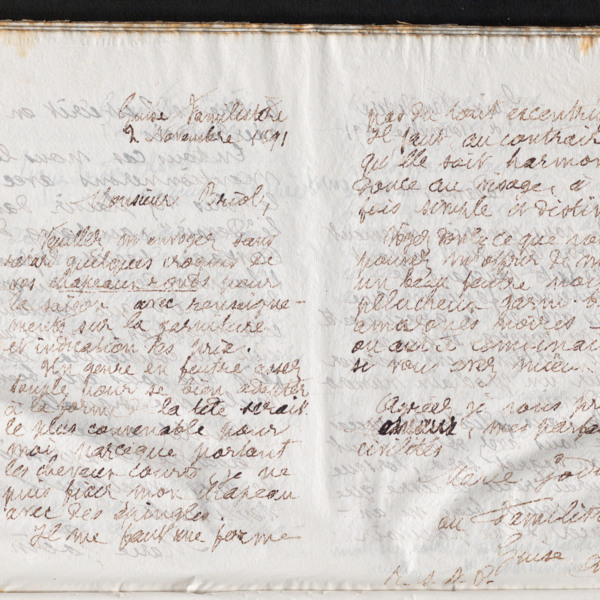 Guise Familistère
2 Novembre 1891
Monsieur Brioly
Veuillez m'envoyer sans
retard quelques croquis de
vos chapeaux ronds pour
la saison avec renseigne-
ments sur la garniture
et indication des prix.
Un genre en feutre assez
souple pour se bien adapter
à la forme la tête serait
le plus convenable pour
moi, parceque portant
les cheveux courts je ne
puis fixer mon chapeau
avec des épingles.
Il me faut une forme
pas du tout excentri
Il faut au contrair
qu'elle soit harmon
douce au visage, à
fois simple et distin
Voyez donc ce que vous
pouvez m'offrir
un beau feutre noir
plucheux garni
amazones noires
ou autre combinai
si vous avez mieux.
Agréez je vous pr
mes parfai
civilités
Marie
au Familist
Guise